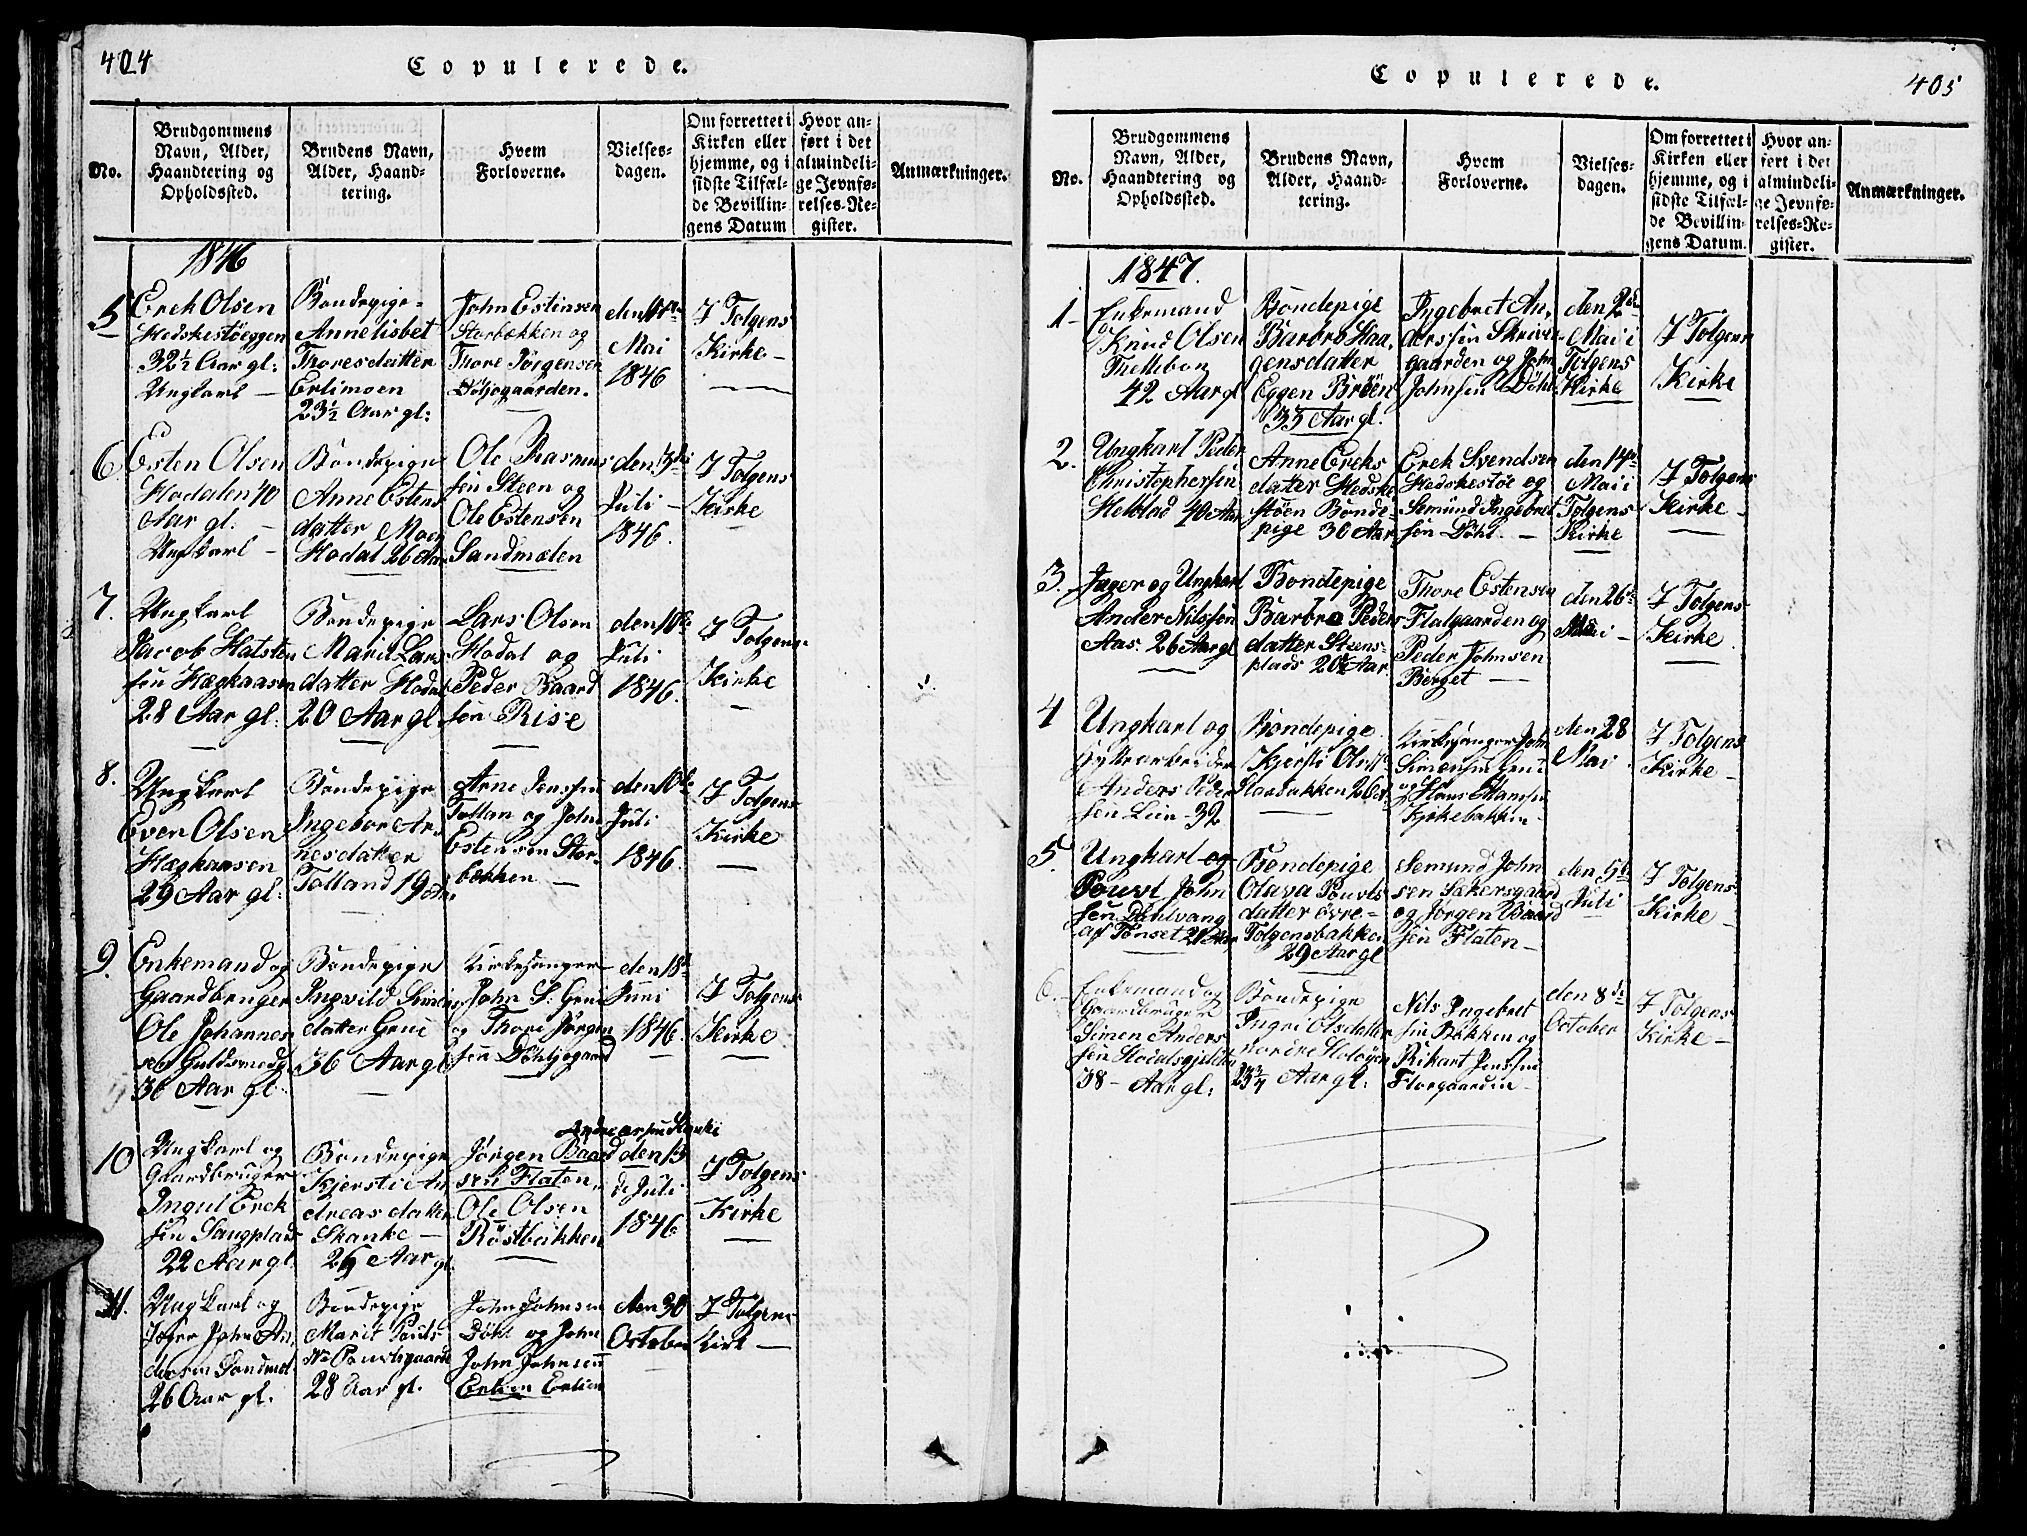 404
Copulerede.
No.
Brudgommens
Navn, Alder,
Haandtering og
Opholdssted.
Brudens Navn,
Alder, Haand-
tering.
Hvem
Forloverne.
Vielses-
dagen.
Om forrettet i
Kirken eller
hjemme, og i
sidste Tilfæl-
de Bevillin-
gens Datum
Hvor an-
ført i det
almindeli-
ge Jevnfø-
relses-Re-
gister.
Anmærkninger.
1846
5
Erek Olsen
Hodskestöeggen
32½ Aar gl:
Ungkarl —
Bondepige
Annelisbet
Thoresdatter
Erlimoen
23½ Aar gl:
John Estinsen
Storbækken og
Thore Jörgensen
Döljegaarden.
Mai
1846
I Tolgens
Kirke —
6.
Esten Olsen
Hodalen 40
Aar gl. —
Ungkarl —
Bondepige
Anne Estens
datter Moen
Hodal 26 Aar
Ole Rasmus
sen Steen og
Ole Estensen
Sandmælen
den 3die
Juli —
1846.
I Tolgens
Kirke
7.
Ungkarl
Jacob Halsten
sen Kægkaasen
28 Aar gl.
Bondepige
Marit Lars
datter Hodal
20 Aar gl.
Lars Olsen
Hodal og
Peder Baard
sen Rise
den 10de
Juli
1846.
I Tolgens
Kirke
8.
Ungkarl
Even Olsen
Kægkaasen
29 Aar gl.
Bondepige
Ingebor Ar
nesdatter
Tolland 19
Arne Jenssen
Tollan og John
Estensen Stor-
bekken —
den 10de
Juli
1846.
I Tolgens
Kirke
9.
Enkemand og
Gaardbruger
Ole Johannes
sen Guldsmed
36 Aar gl.
Bondepige
Ingvild Simen
datter Grue
36 Aar gl
Kirkesanger
John S. Grue
og Thore Jörgen
sen Döhljegaard
den 13de
Juni
1846.
I Tolgens
Kirke
10
Ungkarl og
Gaardbruger
Ingul Erek
sen Langplads
22 Aar gl.
Bondepige
Kjersti An
dreas datter
Skanke —
26 Aar gl.
Andreassen Skanke
Jörgen Baard
sen Flaten
Ole Olsen
Röstbakken
den 13
de Juli
1846
I Tolgens
Kirke
11.
Ungkarl og
Jæger John An,
dersen Sandmæl
26 Aar gl.
Bondepige
Marit Pouls
28 Aar gl.
John Johnsen
Döhl og John
John Johnsen
Erlien Erlien
den 30
October
I Tolgens
Kirk —
405
Copulerede.
No.
Brudgommens
Navn, Alder,
Haandtering og
Opholdssted.
Brudens Navn,
Alder, Haand-
tering.
Hvem
Forloverne.
Vielses-
dagen.
Om forrettet i
Kirken eller
hjemme, og i
sidste Tilfæl-
de Bevillin-
gens Datum.
Hvor an-
ført i det
almindeli-
ge Jevnfø-
relses-Re-
gister.
Anmærkninger.
1847.
1
Enkemand
Knud Olsen
42 Aar gl
Bondepige
Barbro Haa,
gensdatter
Eggen Bröen
35 Aar gl.
Jngebret An,
derssen Skriver-
gaarden og John
Johnsen Döhl
den 2de
Mai i
Tolgens
Kirke
I Tolgens
Kirke
2.
Ungkarl Peder
Christophersen
40 Aar
Anne Ereks
datter Hodske
stöen Bonde-
pige 30 Aar
Erek Svendsen
Hodskestöe og
Semund Ingebret
sen Döhl. —
den 14de
Mai i
Tolgens
Kirke
I Tolgens
Kirke —
3.
Jæger og Ungkarl
Ander Nilssen
Aas. 26 Aar gl
Bondepige
Barbro Peders
datter Steens-
plads 20 Aar
Thore Estensen
Flatgaarden og
Peder Johnsen
Berget —
den 26de
Mai —
I Tolgens
Kirke
4
Ungkarl og
Hytterarbeider
Anders Peder
sen Lien 32
Bondepige
Kjersti Ols
Kirkesanger John
Simensen Grue
og Hans Hansen
Kirkebakken
den 28
Mai
I Tolgens
Kirke —
5.
Ungkarl og
Pouvl John
sen Dahlvang
af Tönset
Bondepige
Olava Pouvls
datter övre-
Tolgensbakken
29 Aar gl
Semund John
sen Lakersgaard
og Jörgen Baard
sen Flaten —
den 5te
Juli
I Tolgens
Kirke —
6.
Enkemand og
Gaardbruger
Simen Anders
sen Hodalsgjelten
38 — Aar gl:
Bondepige
Ingri Olsdatter
nordre Holöyen
Aar gl:
Nils Ingebret
sen Bakken og
Rikart Jenssen
Floegaarden —
den 8de
October
I Tolgens
Kirke —